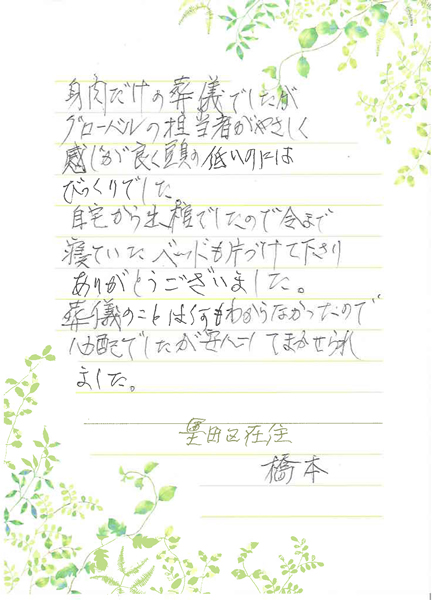 身肉だけの葬儀でしたが
グローバルの担当者がやさしく
感じが良く頭の低いのには
びっくりでした。
自宅から出棺でしたので今まで
寝ていたベッドも片づけて下さり
ありがとうございました。
葬儀のことは何もわからなかったので
心配でしたが安心してまかせられ
ました。
墨田区在住
橋本